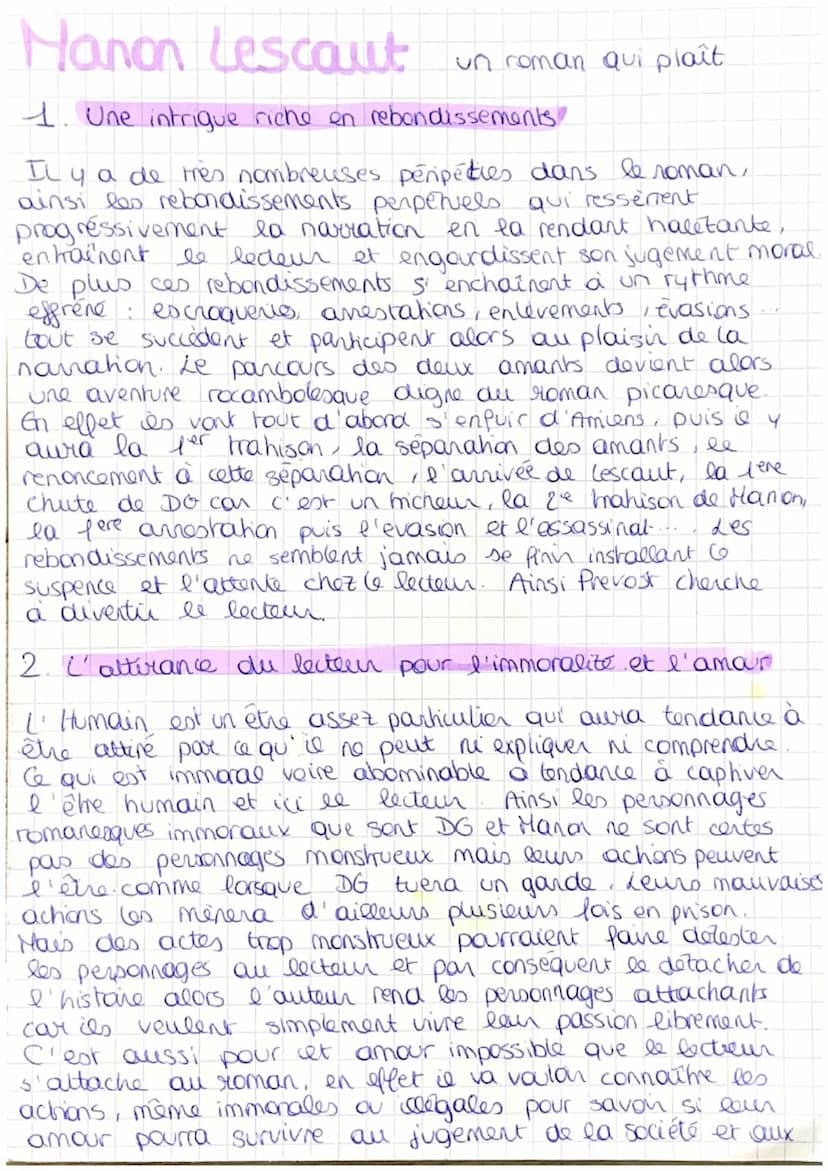 Manon Lescaut un roman qui plaît
1. Une intrigue riche en rebondissements
Il y a de très nombreuses péripéties dans le roman,
ainsi les rebondissements perpetuels qui ressèrrent
progréssivement la narration en la rendant haletante,
entraînent le lecteur et engourdissent son jugement moral.
De plus ces rebondissements s'enchaînent à un rythme
effréné : escroqueries, arrestations, enlèvements, évasions...
tout se succèdent et participent alors au plaisir de la
narration. Le parcours des deux amants devient alors
une aventure rocambolesque digne du roman picaresque.
En effet ils vont tout d'abord s'enfuir d'Amiens, puis il y
aura la 1er trahison, la séparation des amants, le
renoncement à cette séparation, l'arrivée de Lescaut, la 1ere
chute de DG car c'est un tricheur, la 2e trahison de Manon,
la 1ere arrestation puis l'evasion et l'assassinat.... Les
rebondissements ne semblent jamais se finir installant le
suspence et l'attente chez le lecteur. Ainsi Prevost cherche
à divertir le lecteur.
2. L'attirance du lecteur pour l'immoralité et l'amour
L'Humain est un être assez particulier qui aura tendance à
être attiré par ce qu'il ne peut ni expliquer ni comprendre.
Ce qui est immoral voire abominable a tendance à captiver
l'être humain et ici le lecteur. Ainsi les personnages
romanesques immoraux que sont DG et Manon ne sont certes
pas des personnages monstrueux mais leurs actions peuvent
l'être comme lorsque DG tuera un garde. Leurs mauvaises
actions les mènera d'ailleurs plusieurs fois en prison.
Mais des actes trop monstrueux pourraient faire détester
les personnages au lecteur et par conséquent le détacher de
l'histoire alors l'auteur rend les personnages attachants
car ils veulent simplement vivre leur passion librement.
C'est aussi pour cet amour impossible que le lectreur
s'attache au roman, en effet il va vouloir connaître les
actions, même immorales ou illégales pour savoir si leur
amour pourra survivre au jugement de la société et aux